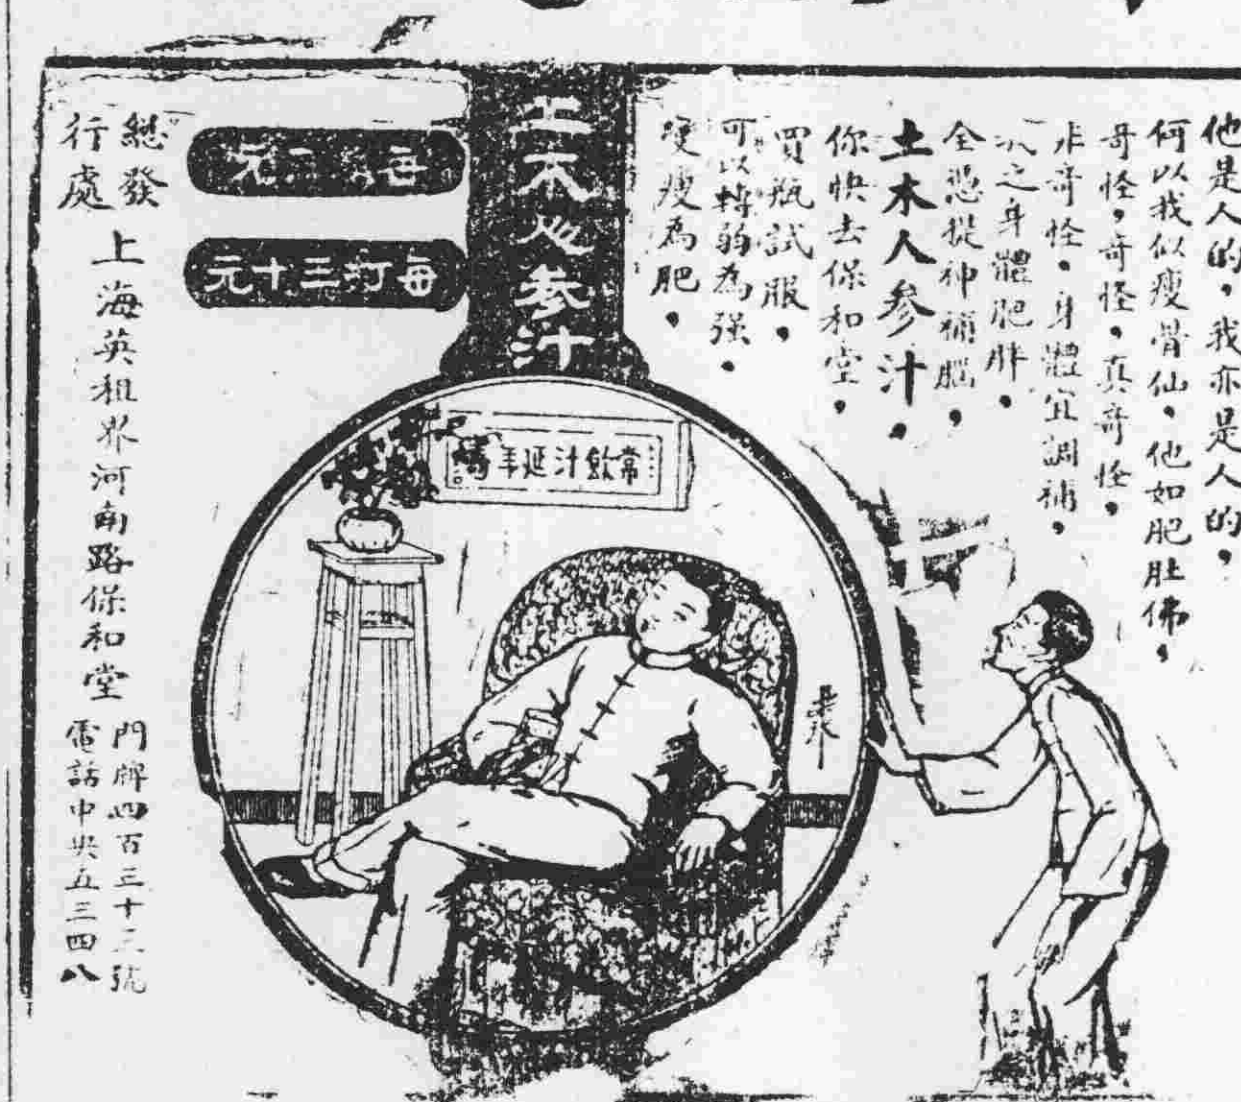 他是人的，我亦是人的，
何以我似瘦骨仙、他如肥肚佛，
奇怪，奇怪，真奇怪，
非奇怪。身體宜調補，
之身體肥胖。
全憑提神補腦，
土木人參汁，
你快去保和堂，
買瓶試服，
可以轉弱為强。
瘦為肥，
土木人参汁
每打三十元
常飲汁延年
總發
行處
上海英租界河南路保和堂
門牌四百三十三號
電話中央五三四八